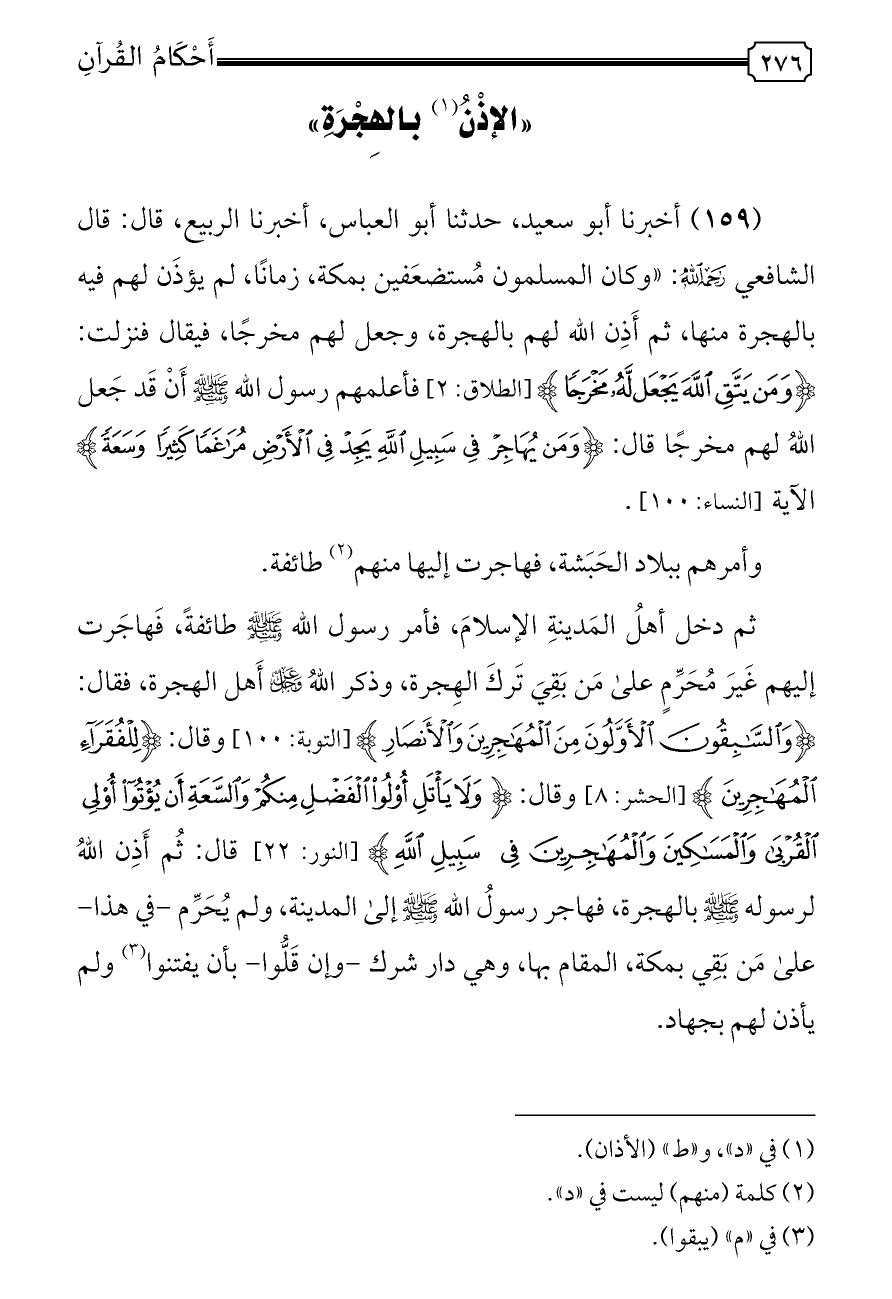 ٢٧٦ أَحْكَامُ القُرآنِ
«الإذْنُ(١) بالهِجْرَةِ»
(١٥٩) أخبرنا أبو سعيد، حدثنا أبو العباس، أخبرنا الربيع، قال: قال
الشافعي رَحِمَهُ اللَّهُ: «وكان المسلمون مُستضعَفين بمكة، زمانًا، لم يؤذَن لهم فيه
بالهجرة منها، ثم أَذِن الله لهم بالهجرة، وجعل لهم مخرجًا، فيقال فنزلت:
﴿وَمَن يَتَّقِ ٱللَّهَ يَجْعَل لَّهُۥ مَخْرَجًا﴾ [الطلاق: ٢] فأعلمهم رسول الله ﷺ أَنْ قَد جَعل
اللهُ لهم مخرجًا قال: ﴿وَمَن يُهَاجِرْ فِى سَبِيلِ ٱللَّهِ يَجِدْ فِى ٱلْأَرْضِ مُرَٰغَمًا كَثِيرًا وَسَعَةً﴾
الآية [النساء: ١٠٠] .
وأمرهم ببلاد الحَبَشة، فهاجرت إليها منهم(٢) طائفة.
ثم دخل أهلُ المَدينةِ الإسلامَ، فأمر رسول الله ﷺ طائفةً، فَهاجَرت
إليهم غَيرَ مُحَرِّمٍ علىٰ مَن بَقِيَ تَركَ الهِجرة، وذكر اللهُ عَزَّ وَجَلَّ أَهل الهجرة، فقال:
﴿وَٱلسَّٰبِقُونَ ٱلْأَوَّلُونَ مِنَ ٱلْمُهَٰجِرِينَ وَٱلْأَنصَارِ﴾ [التوبة: ١٠٠] وقال: ﴿لِلْفُقَرَآءِ
ٱلْمُهَٰجِرِينَ﴾ [الحشر: ٨] وقال: ﴿وَلَا يَأْتَلِ أُو۟لُوا۟ ٱلْفَضْلِ مِنكُمْ وَٱلسَّعَةِ أَن يُؤْتُوٓا۟ أُو۟لِى
ٱلْقُرْبَىٰ وَٱلْمَسَٰكِينَ وَٱلْمُهَٰجِرِينَ فِى سَبِيلِ ٱللَّهِ﴾ [النور: ٢٢] قال: ثُم أَذِن اللهُ
لرسوله ﷺ بالهجرة، فهاجر رسولُ الله ﷺ إلىٰ المدينة، ولم يُحَرِّم -في هذا-
علىٰ مَن بَقِي بمكة، المقام بها، وهي دار شرك -وإن قَلُّوا- بأن يفتنوا(٣) ولم
يأذن لهم بجهاد.
(١) في «د»، و«ط» (الأذان).
(٢) كلمة (منهم) ليست في «د».
(٣) في «م» (يبقوا).